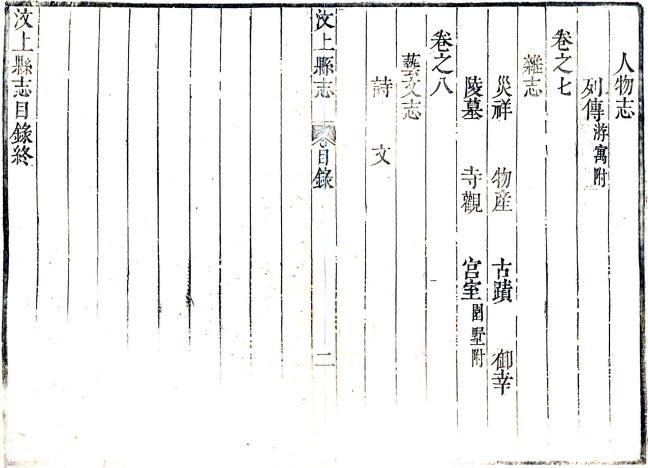 人物志
列傳 游寓附
卷之七
雜志
災祥 物產 古蹟 御幸
陵墓 寺觀 宮室 園墅附
卷之八
藝文志
詩 文
汶上縣志 目錄 二
汶上縣志目錄終